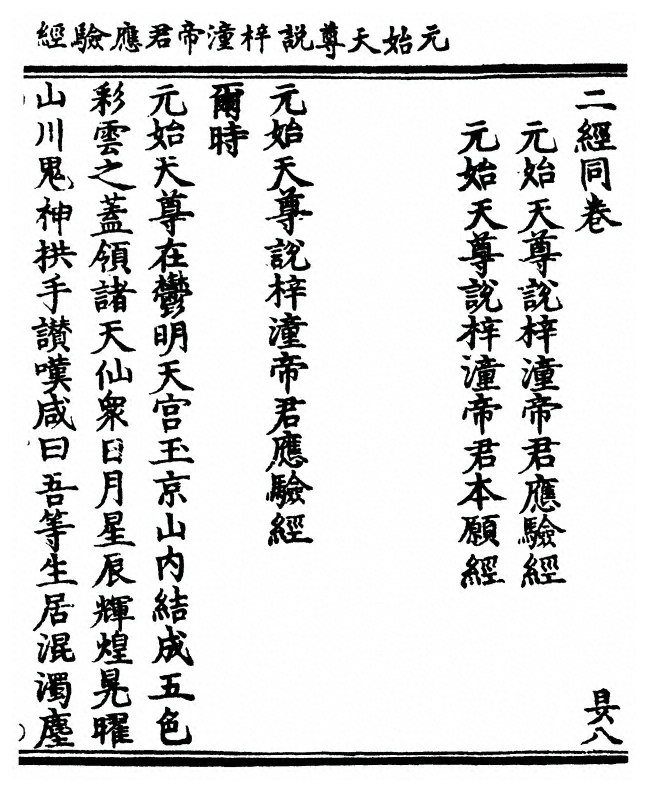 元始天尊說梓潼帝君應驗經
二經同卷　昃八
元始天尊說梓潼帝君應驗經
元始天尊說梓潼帝君本願經
元始天尊說梓潼帝君應驗經
爾時
元始天尊在鬱明天宮玉京山內結成五色
彩雲之蓋領諸天仙衆日月星辰輝煌晃曜
山川鬼神拱手讃嘆咸曰吾等生居混濁塵